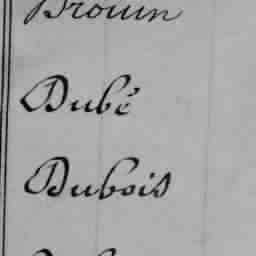 Brown
Dubé
Dubois